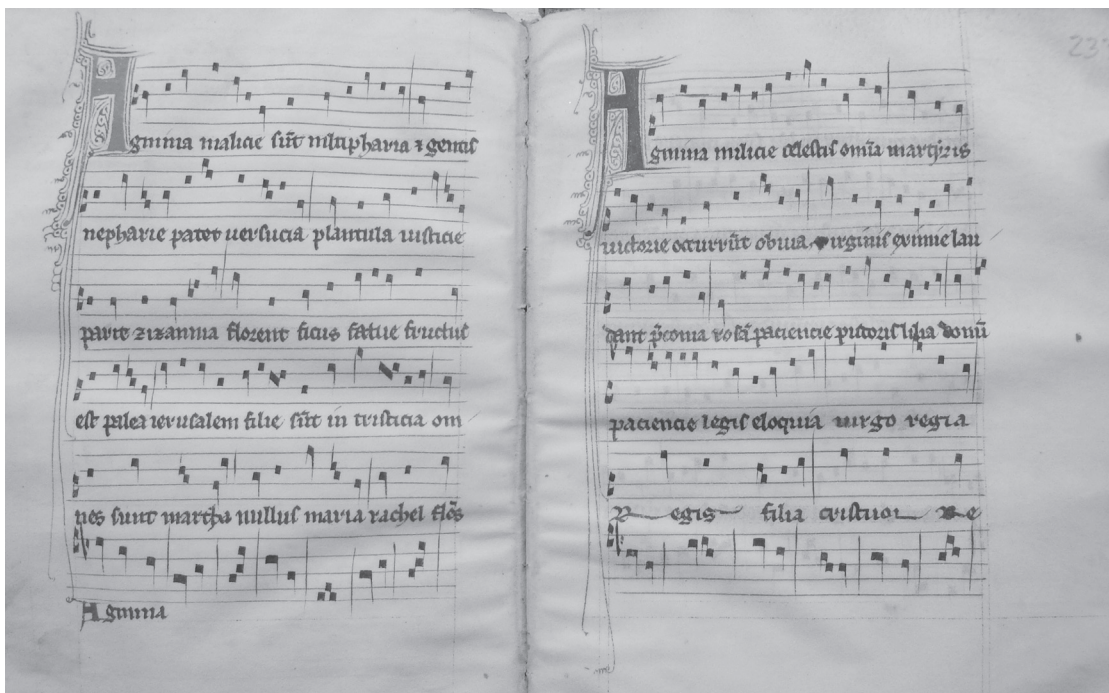 Agmina malicie sūt mltipharia ⁊ gentis
nepharie patet uersucia plantula iusticie
parit zizannia florent ficus fatue fructus
est palea ierusalem filie sūt in tristicia om
nes sunt martha nullus maria rachel
Agmina
Agmina milicie celestis om̄ia martyris
uictorie occurrūt obuia virginis eximie lau
dant p̄conia rosā paciencie pudoris lilia
paciencie legis eloquia uirgo regia
Regis filia
237